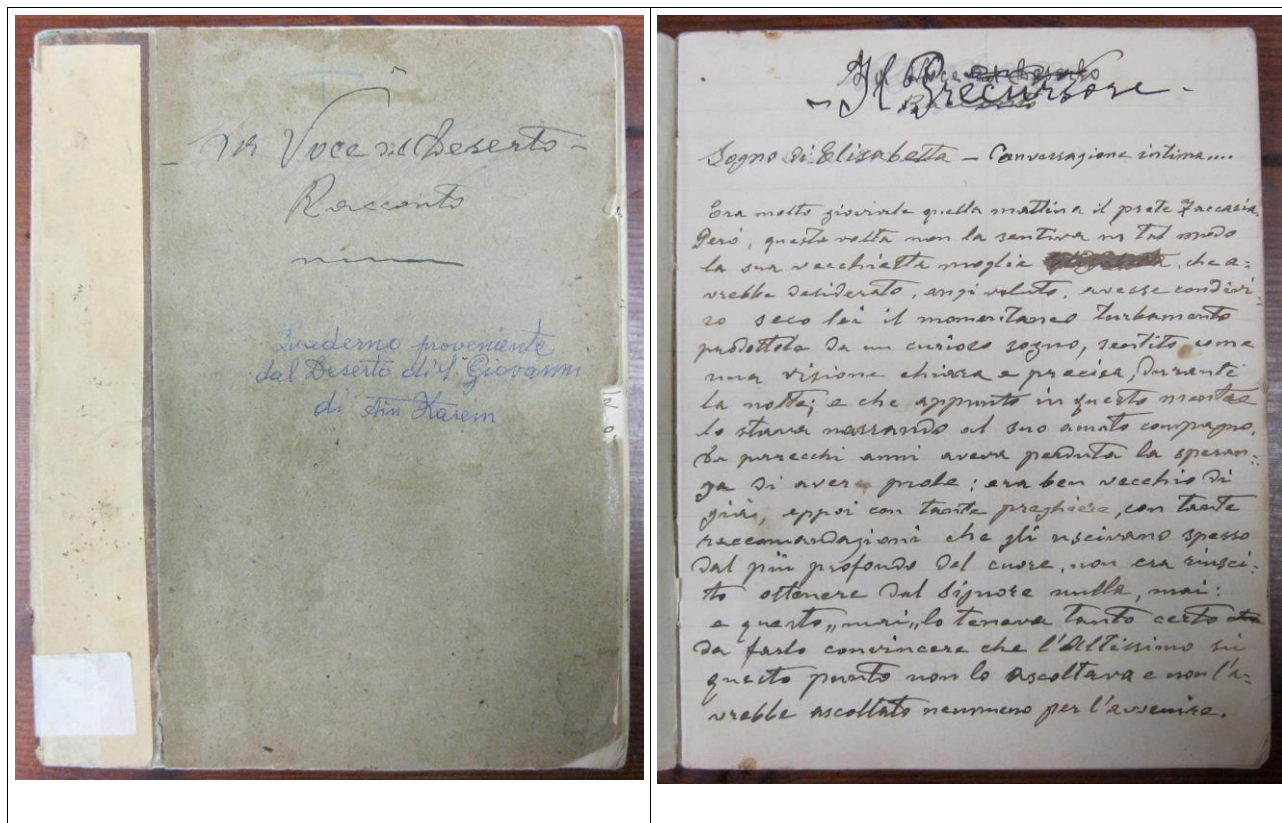 - Voce nel Deserto -
Racconto
Quaderno proveniente
dal Deserto di S. Giovanni
di Ain Karem
- Il Precursore -
Sogno di Elisabetta - Conversazione intima....
Era molto gioviale quella mattina il prete Zaccaria.
Peró, questa volta non la sentiva in tal modo
la sua vecchietta moglie, che a=
vrebbe desiderato, anzi voluto, avesse condivi=
so seco lei il momentaneo turbamento
prodottole da un curioso sogno, sentito come
una visione chiara e precisa, durante
la notte; e che appunto in questo mentre
lo stava narrando al suo amato compagno.
Da parecchi anni aveva perduta la speran=
za di avere prole; era ben vecchio di
giá, eppoi con tante preghiere, con tante
raccomandazioni che gli uscivano spesso
dal piú profondo del cuore, non era riusci=
to ottenere dal Signore nulla, mai:
e questo „mai„ lo teneva tanto certo
da farlo convincere che l'Altissimo su
questo punto non lo ascoltava e non l'a=
vrebbe ascoltato nemmeno per l'avvenire.